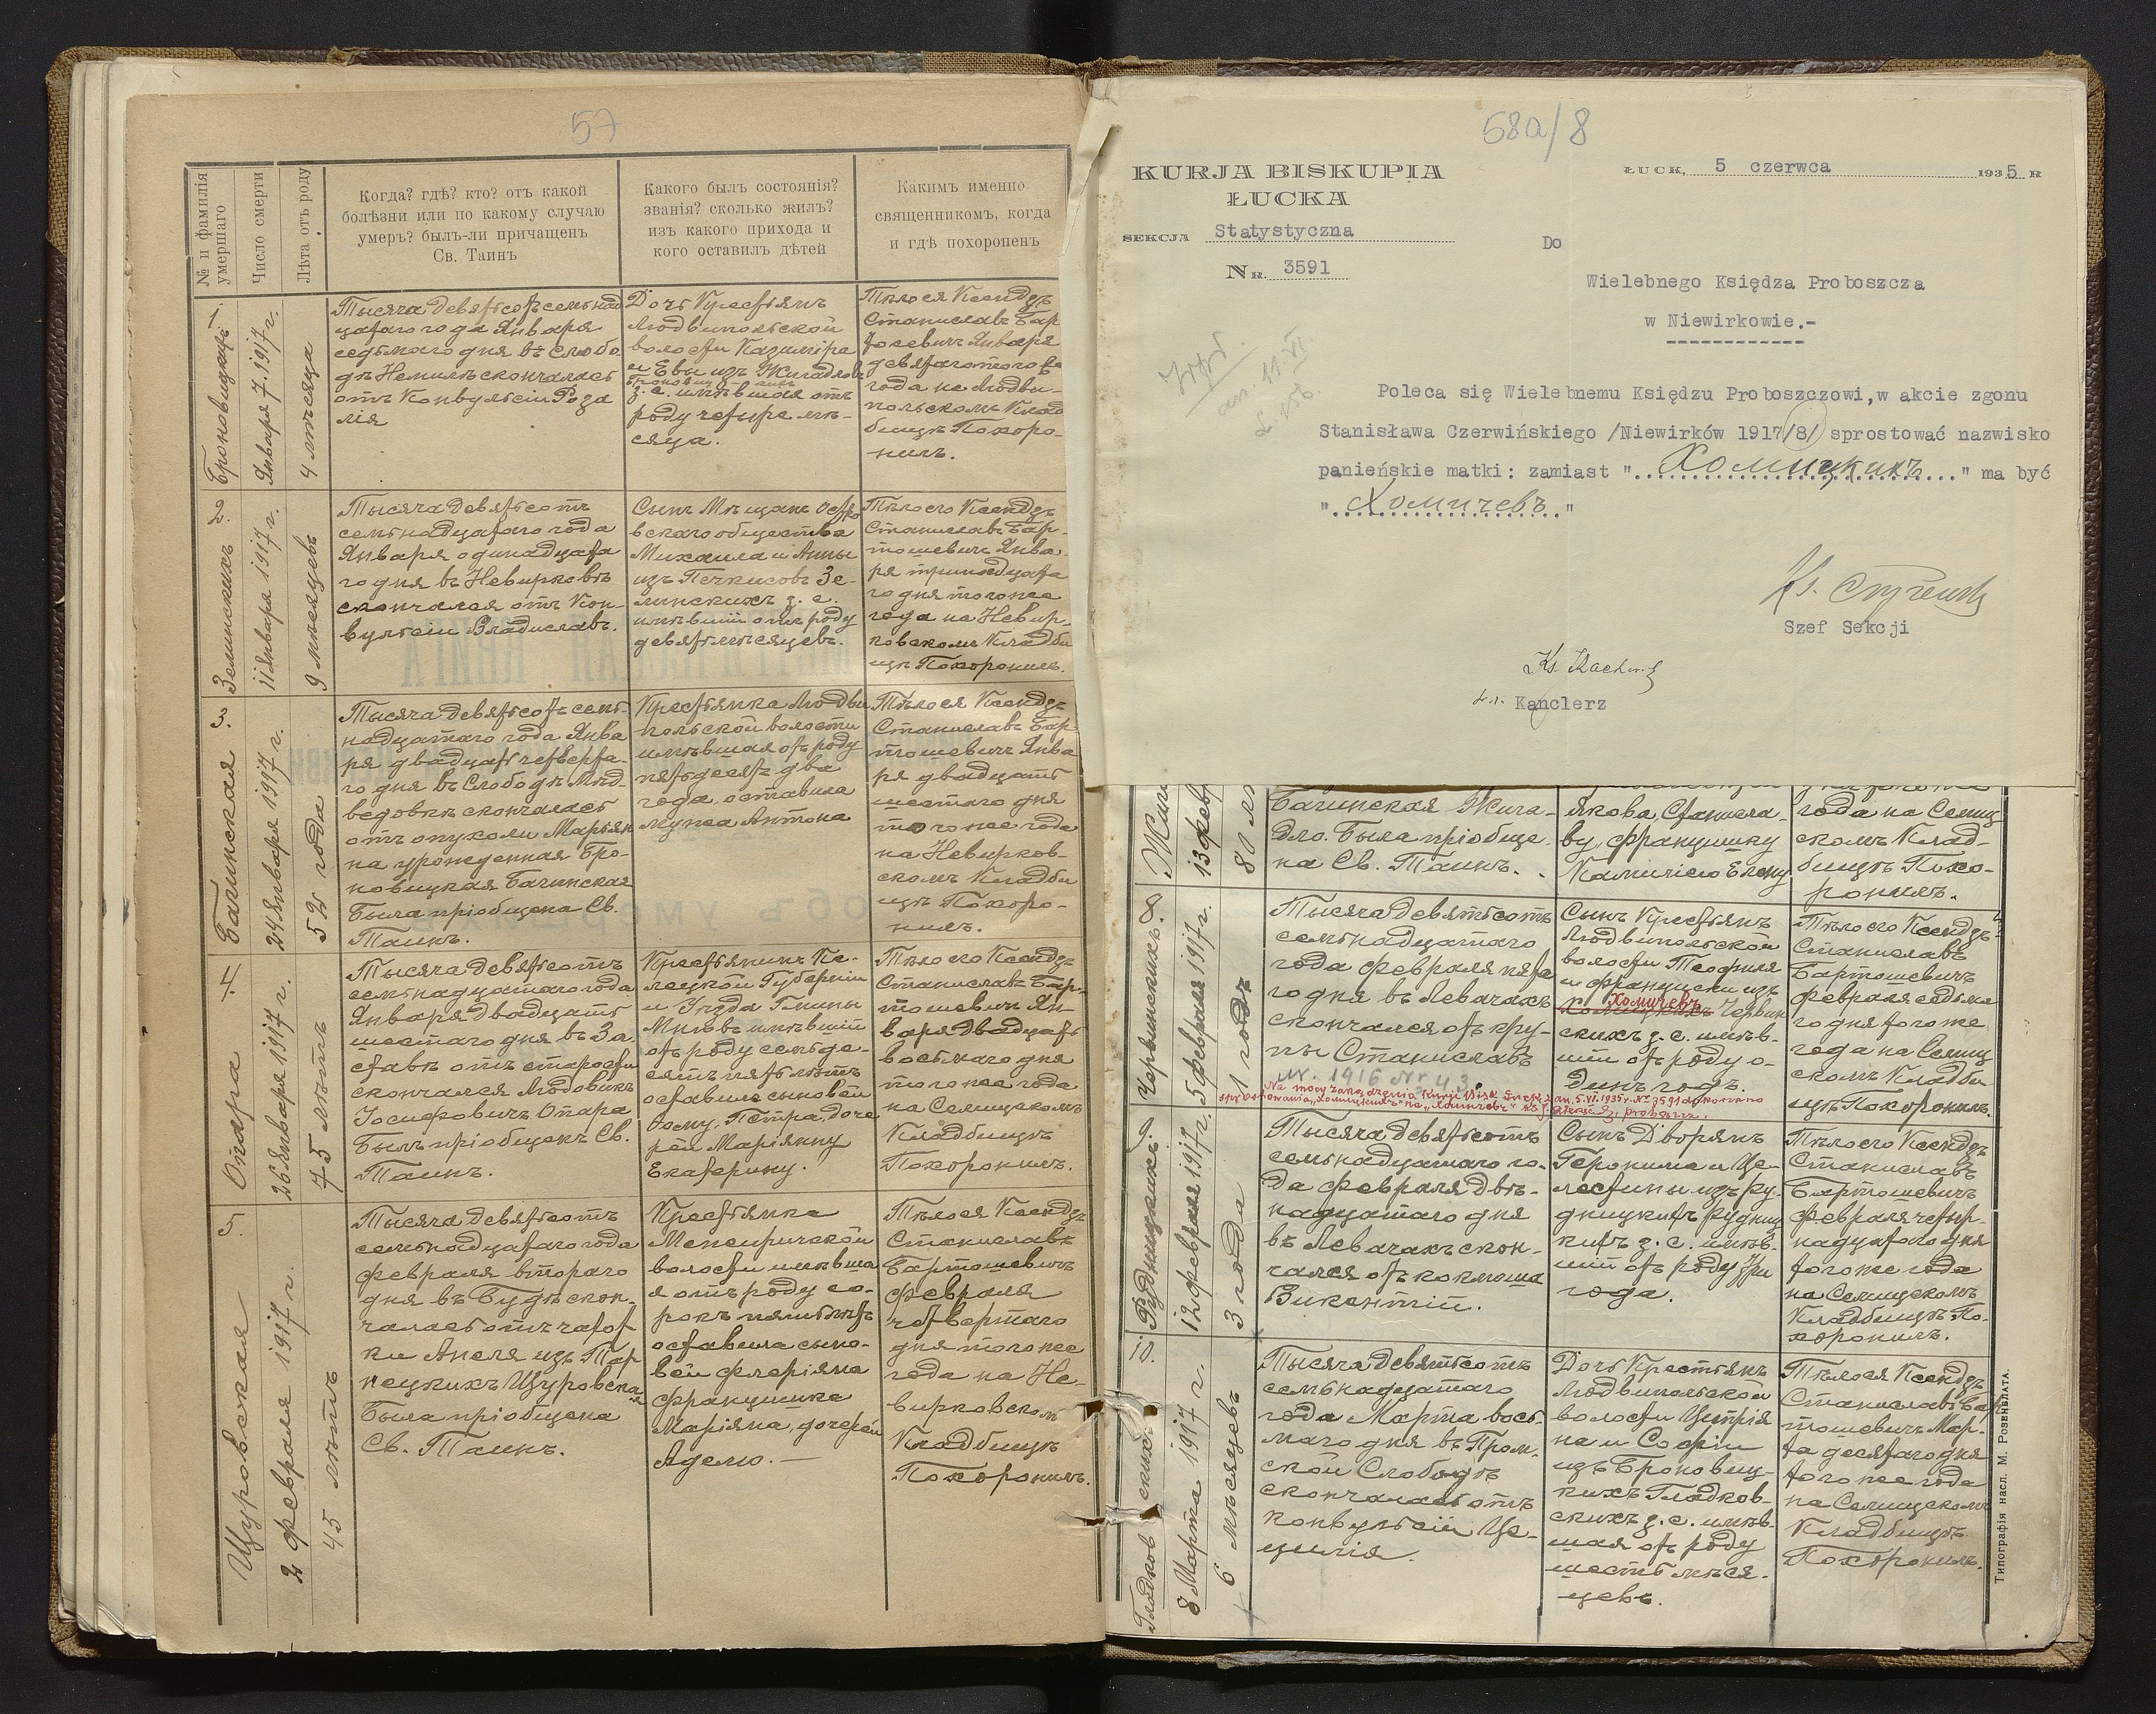 57
№ и фамилія умершаго
Число смерти
Лѣта отъ роду
Когда? гдѣ? кто? отъ какой
болѣзни или по какому случаю
умеръ? былъ-ли причащенъ
Св. Таинъ
Какого былъ состоянія?
званія? сколько жилъ?
изъ какого прихода и
кого оставилъ дѣтей
Какимъ именно
священникомъ, когда
и гдѣ похороненъ
1.
Января 7. 1917 г.
4 мѣсяца
Тысяча девятьсотъ семьнад
цатаго года Января
седьмаго дня въ слобо
дѣ Немилѣ скончалась
отъ Конвульсіи Роза
лія
Дочь Крестьянъ
Людвипольской
волости Казиміра
и Евы изъ
з. с. имѣвшая отъ
роду четыре мѣ-
сяца.
Тѣло ея Ксендзъ
Станиславъ Бар
тосевичъ Января
девятаго того же
года на Людви-
польскомъ Клад
бищѣ Похоро-
нилъ.
2.
Зелинскихъ
11 Января 1917 г.
9 мѣсяцевъ
Тысяча девятьсотъ
семьнадцатаго года
Января одинадцата
го дня въ Невирковѣ
скончался отъ Кон-
вульсіи Владиславъ.
Сынъ Мѣщанъ
вскаго общества
Михаила и Анны
изъ Печкисовъ Зе-
линскихъ з. с.
имѣвшій отъ роду
девять мѣсяцевъ.
Тѣло его Ксендзъ
Станиславъ Бар-
тошевичъ Янва-
ря тринадцата
го дня того же
года на Невир-
ковскомъ Кладби
щѣ Похоронилъ.
3.
Багинская
24 Января 1917 г.
52 года
Тысяча девятьсотъ семь-
надцатаго года Янва
ря двадцать четверта-
го дня въ Слободѣ Мѣд-
ведовкѣ скончалась
отъ опухоли Марьян
на урожденная Бро-
новицкая Багинская
Была пріобщена Св.
Таинъ.
Крестьянка Людви
польской волости
имѣвшая отъ роду
пятьдесятъ два
года, оставила
мужа Антона
Тѣло ея Ксендзъ
Станиславъ Бар-
тошевичъ Янва
ря двадцать
шестаго дня
того же года
на Невирков-
скомъ Кладби
щѣ Похоро-
нилъ.
4.
Опара
26 Января 1917 г.
75 лѣтъ
Тысяча девятьсотъ
семьнадцатаго года
Января двадцать
шестаго дня въ За
ставѣ отъ старости
скончался Людовикъ
Іосифовичъ Опара
Былъ пріобщенъ Св.
Таинъ.
Крестьянинъ Ке-
лецкой Губерніи
и Уѣзда Гмины
имѣвшій
отъ роду семьде-
сятъ пять лѣтъ
оставилъ сыновей
Петра, доче
рей Маріянну
Екатерину.
Тѣло его Ксендзъ
Станиславъ Бар-
тошевичъ Ян-
варя двадцать
восьмаго дня
того же года
на Селищскомъ
Кладбищѣ
Похоронилъ.
5.
Щуровская
2 февраля 1917 г.
45 лѣтъ
Тысяча девятьсотъ
семьнадцатаго года
февраля втораго
дня въ Будѣ скон-
чалась отъ чахот
ки Анеля изъ
Щуровская
Была пріобщена
Св. Таинъ.
Крестьянка
Межиричской
волости имѣвша
я отъ роду со-
рокъ пять лѣтъ
оставила сыно-
вей Флоріяна
Францишка
Маріяна, дочерей
Аделю. —
Тѣло ея Ксендзъ
Станиславъ
Бартошевичъ
февраля
четвертаго
дня того же
года на Не-
вирковскомъ
Кладбищѣ
Похоронилъ.
58a/8
KURJA BISKUPIA
ŁUCKA
SEKCJA Statystyczna
NR. 3591
ŁUCK, 5 czerwca 1935 R
Do
Wielebnego Księdza Proboszcza
w Niewirkowie.-
Poleca się Wielebnemu Księdzu Proboszczowi, w akcie zgonu
Stanisława Czerwińskiego /Niewirków 1917/8/ sprostować nazwisko
panieńskie matki: zamiast "..Хомицкихъ..." ma być
"..Хомичевъ.."
Szef Sekcji
Kanclerz
13 февр
80 лѣ
Багинская Жига-
дло. Была пріобще-
на Св. Таинъ.
Якова, Станисла-
ву, Францишку
Камилію Елену
года на Селищ
скомъ Клад-
бищѣ Похо-
ронилъ.
8.
Червинскихъ
5 февраля 1917 г.
1 годъ
Тысяча девятьсотъ
семьнадцатаго
года февраля пята
го дня въ Левачахъ
скончался отъ кру-
пы Станиславъ
ur. 1916 Nr 43
Сынъ Крестьянъ
Людвипольской
волости Теофиля
и Франциски изъ
Хомичевъ
Хомицкихъ Червин
скихъ з. с. имѣв-
шій отъ роду о-
динъ годъ.
Тѣло его Ксендзъ
Станиславъ
Бартошевичъ
февраля седьма
го дня того же
года на Селищ
скомъ Кладби-
щѣ Похоронилъ.
Na mocy zarządzenia Kurji Bisk. Łuck. z dn. 5.VI.1935 r. Nr 3591 dokonano
sprostowania „Хомицкихъ" na „Хомичевъ"
9.
Рудницкихъ
12 февраля 1917 г.
3 года
Тысяча девятьсотъ
семьнадцатаго го-
да февраля двѣ-
надцатаго дня
въ Левачахъ скон-
чался отъ коклюша
Викентій.
Сынъ Дворянъ
Геронима и Це-
лестины изъ Ру-
дницкихъ Рудниц
кихъ з. с. имѣв-
шій отъ роду три
года.
Тѣло его Ксендзъ
Станиславъ
Бартошевичъ
февраля четыр-
надцатаго дня
того же года
на Селищскомъ
Кладбищѣ По-
хоронилъ.
10.
8 Марта 1917 г.
6 мѣсяцевъ
Тысяча девятьсотъ
семьнадцатаго
года Марта вось-
маго дня въ Пром-
ской Слободѣ
скончалась отъ
конвульсіи Це-
цилія.
Дочь Крестьянъ
Людвипольской
волости Ципрія
на и Софіи
изъ Броновиц-
кихъ Гладков-
скихъ з. с. имѣв-
шая отъ роду
шесть мѣся-
цевъ.
Тѣло ея Ксендзъ
Станиславъ Бар
тошевичъ Мар-
та десятаго дня
того же года
на Селищскомъ
Кладбищѣ
Похоронилъ.
Типографія насл. М. Розенблата.